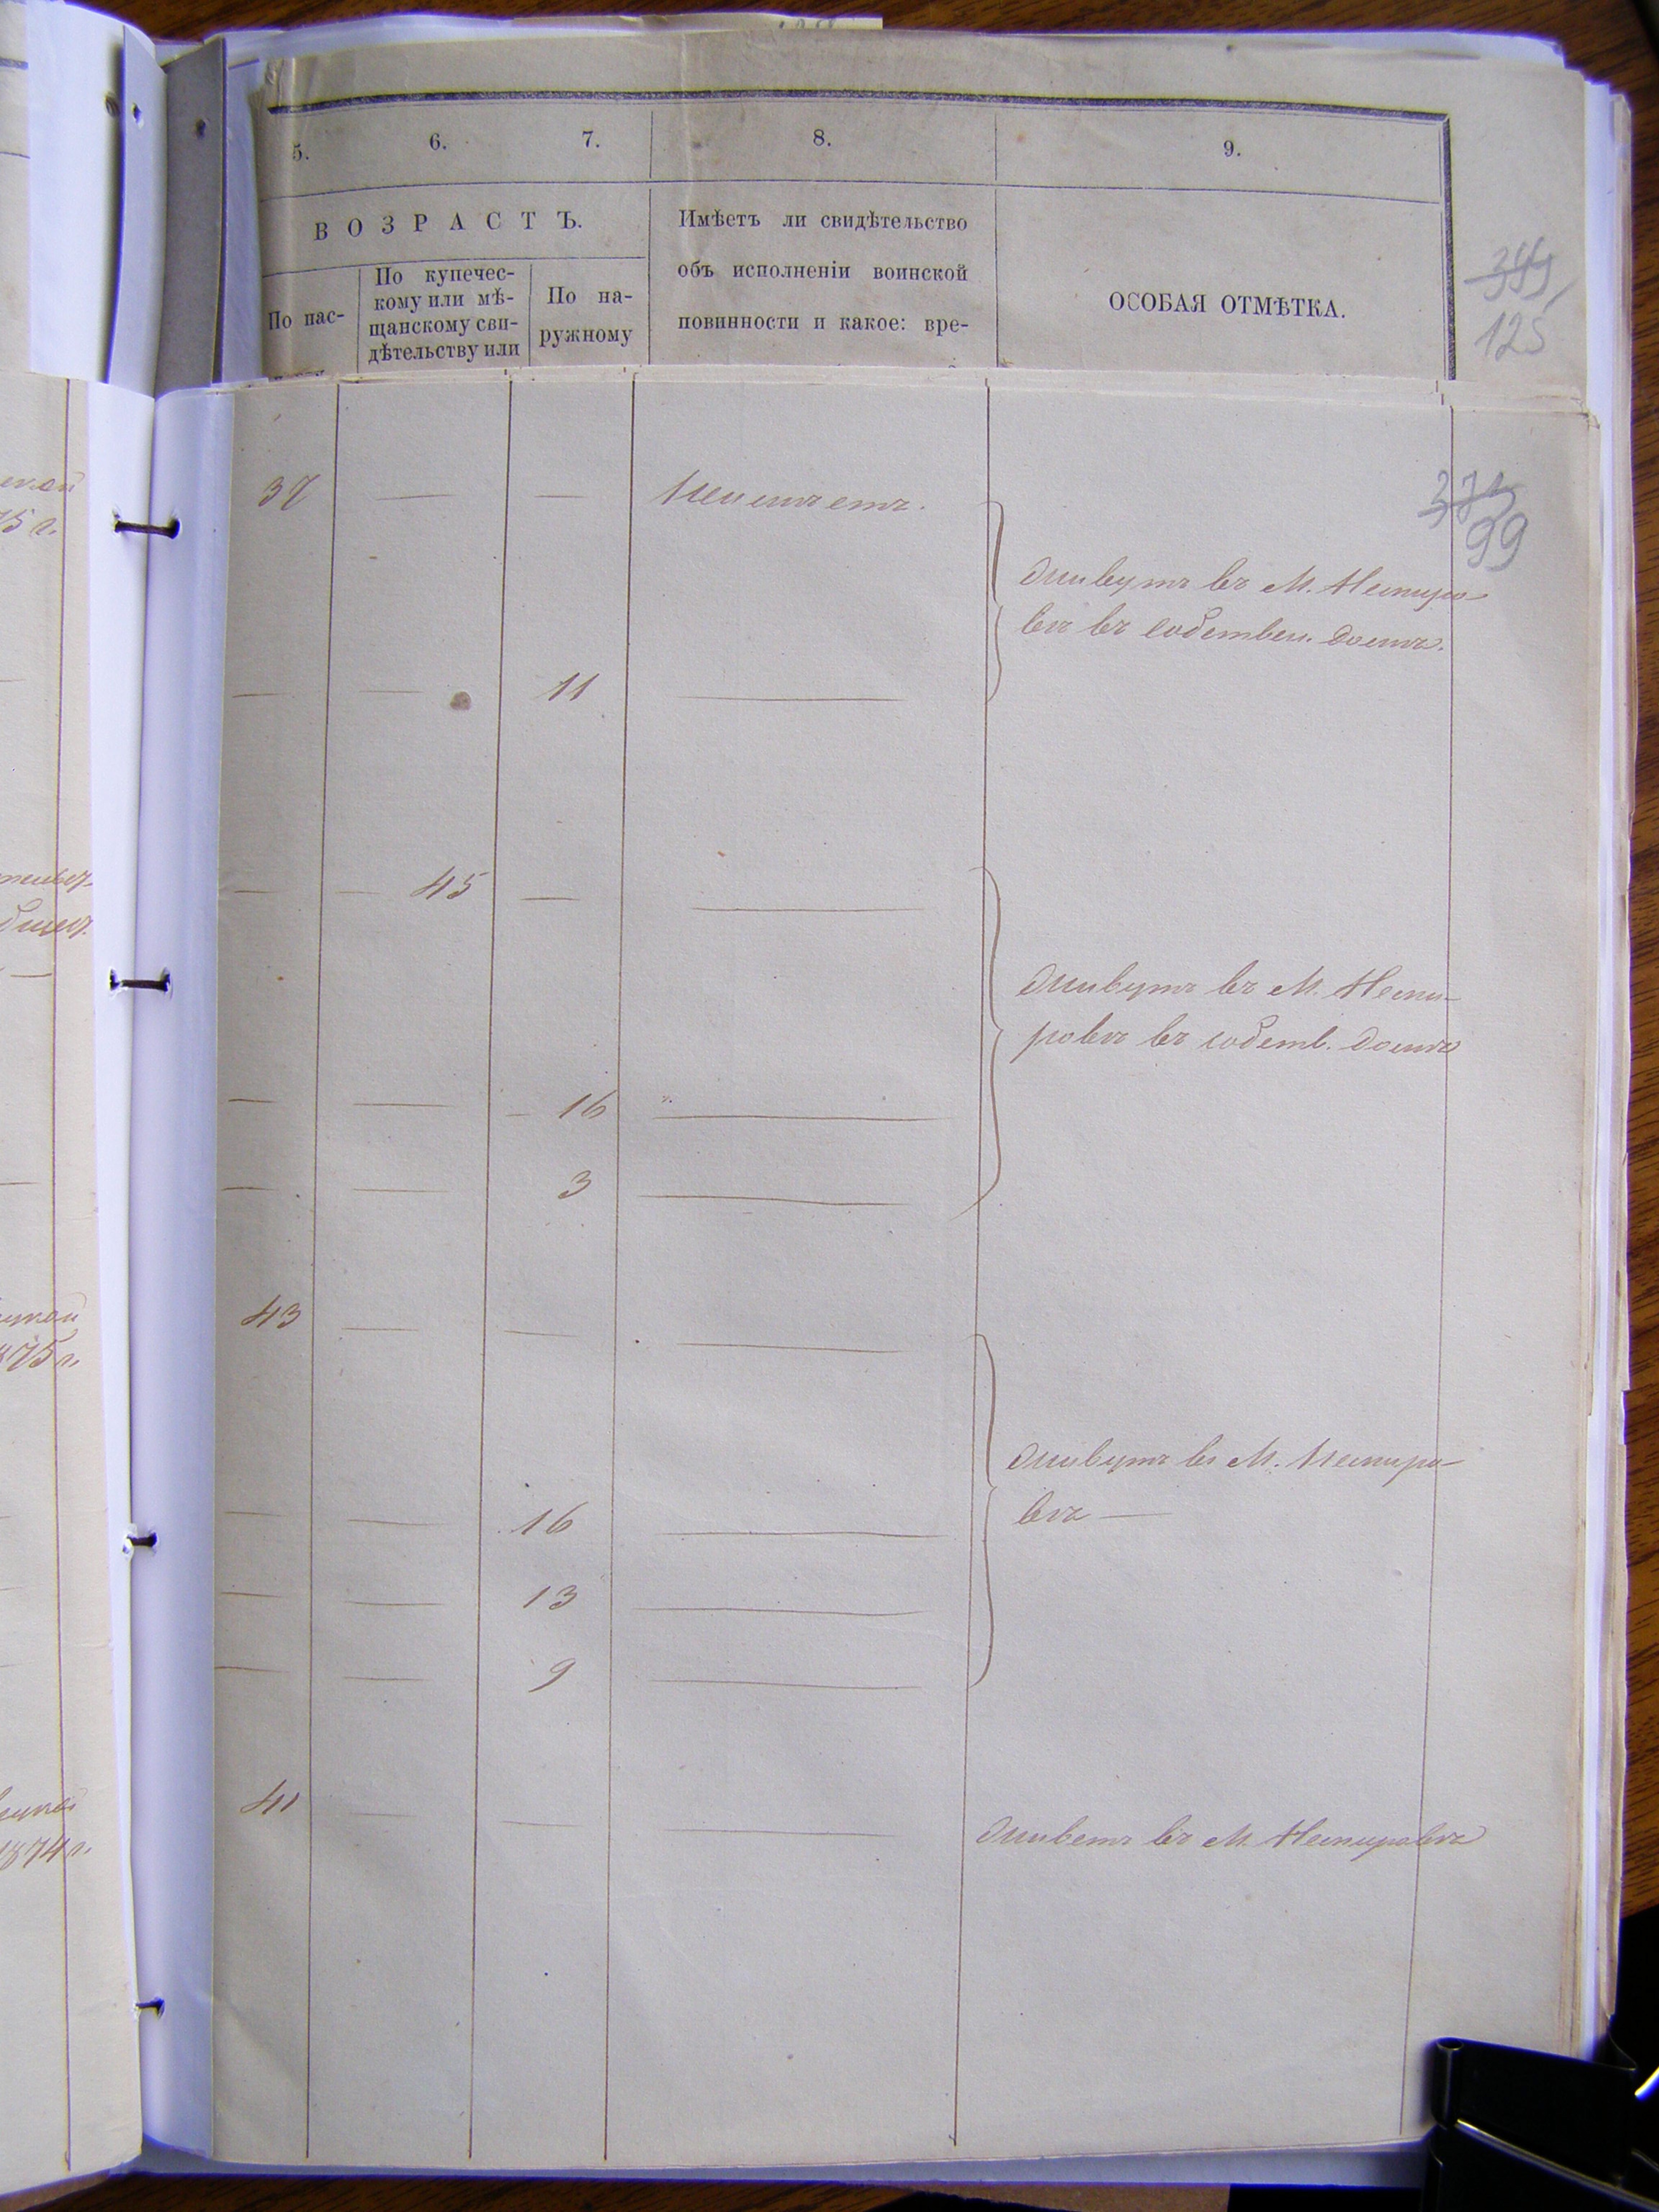 5. 6. 7. 8. 9.
ВОЗРАСТЪ.
По пас-
По купечес-
кому или мѣ-
щанскому сви-
дѣтельству или
По на-
ружному
Имѣетъ ли свидѣтельство
объ исполненіи воинской
повинности и какое: вре-
ОСОБАЯ ОТМѢТКА.
125
99
37 — — Неимѣетъ.
Живутъ въ М. Немиро-
вѣ въ собствен. домѣ.
— — 11 —
— 45 — —
Живутъ въ М. Неми-
ровѣ въ собств. домѣ
— — 16 —
— — 3 —
43 — — —
Живутъ въ М. Немиро-
вѣ —
— — 16 —
— — 13 —
— — 9 —
41 — — — Живетъ въ М. Немировѣ
75 г.
1875 г.
1874 г.